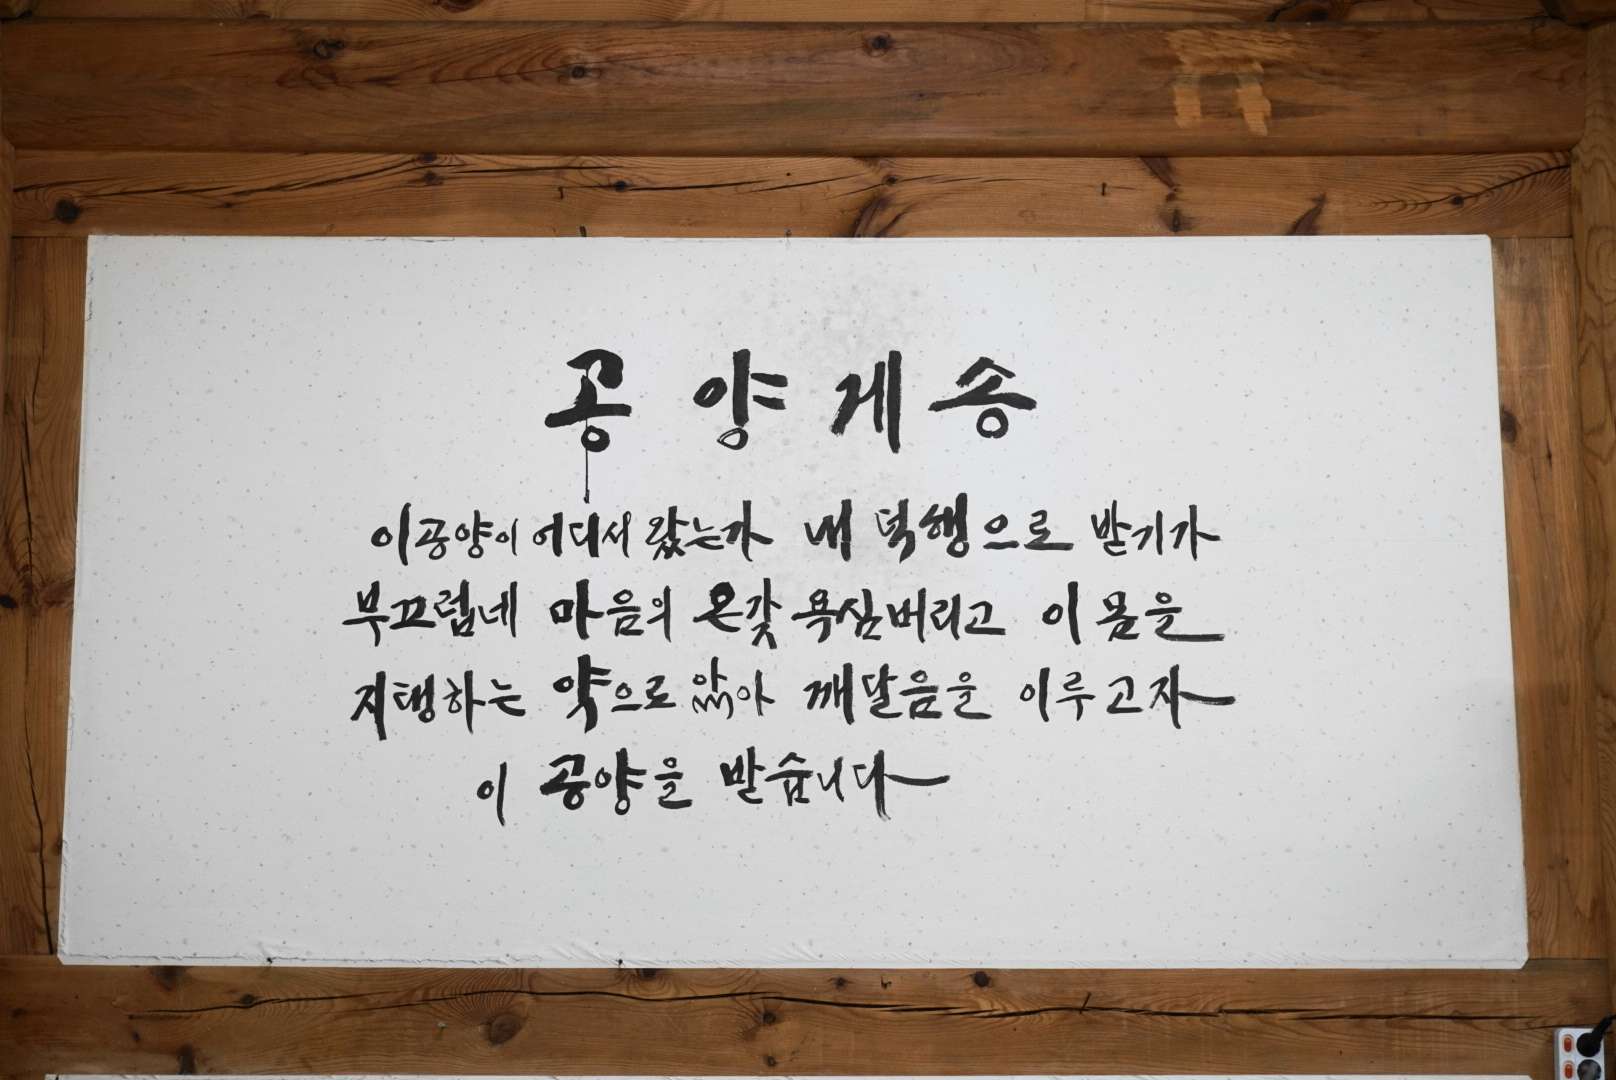 공양게송
이 공양이 어디서 왔는가 내 덕행으로 받기가
부끄럽네 마음의 온갖 욕심 버리고 이 몸을
지탱하는 약으로 앎아 깨달음을 이루고자
이 공양을 받습니다